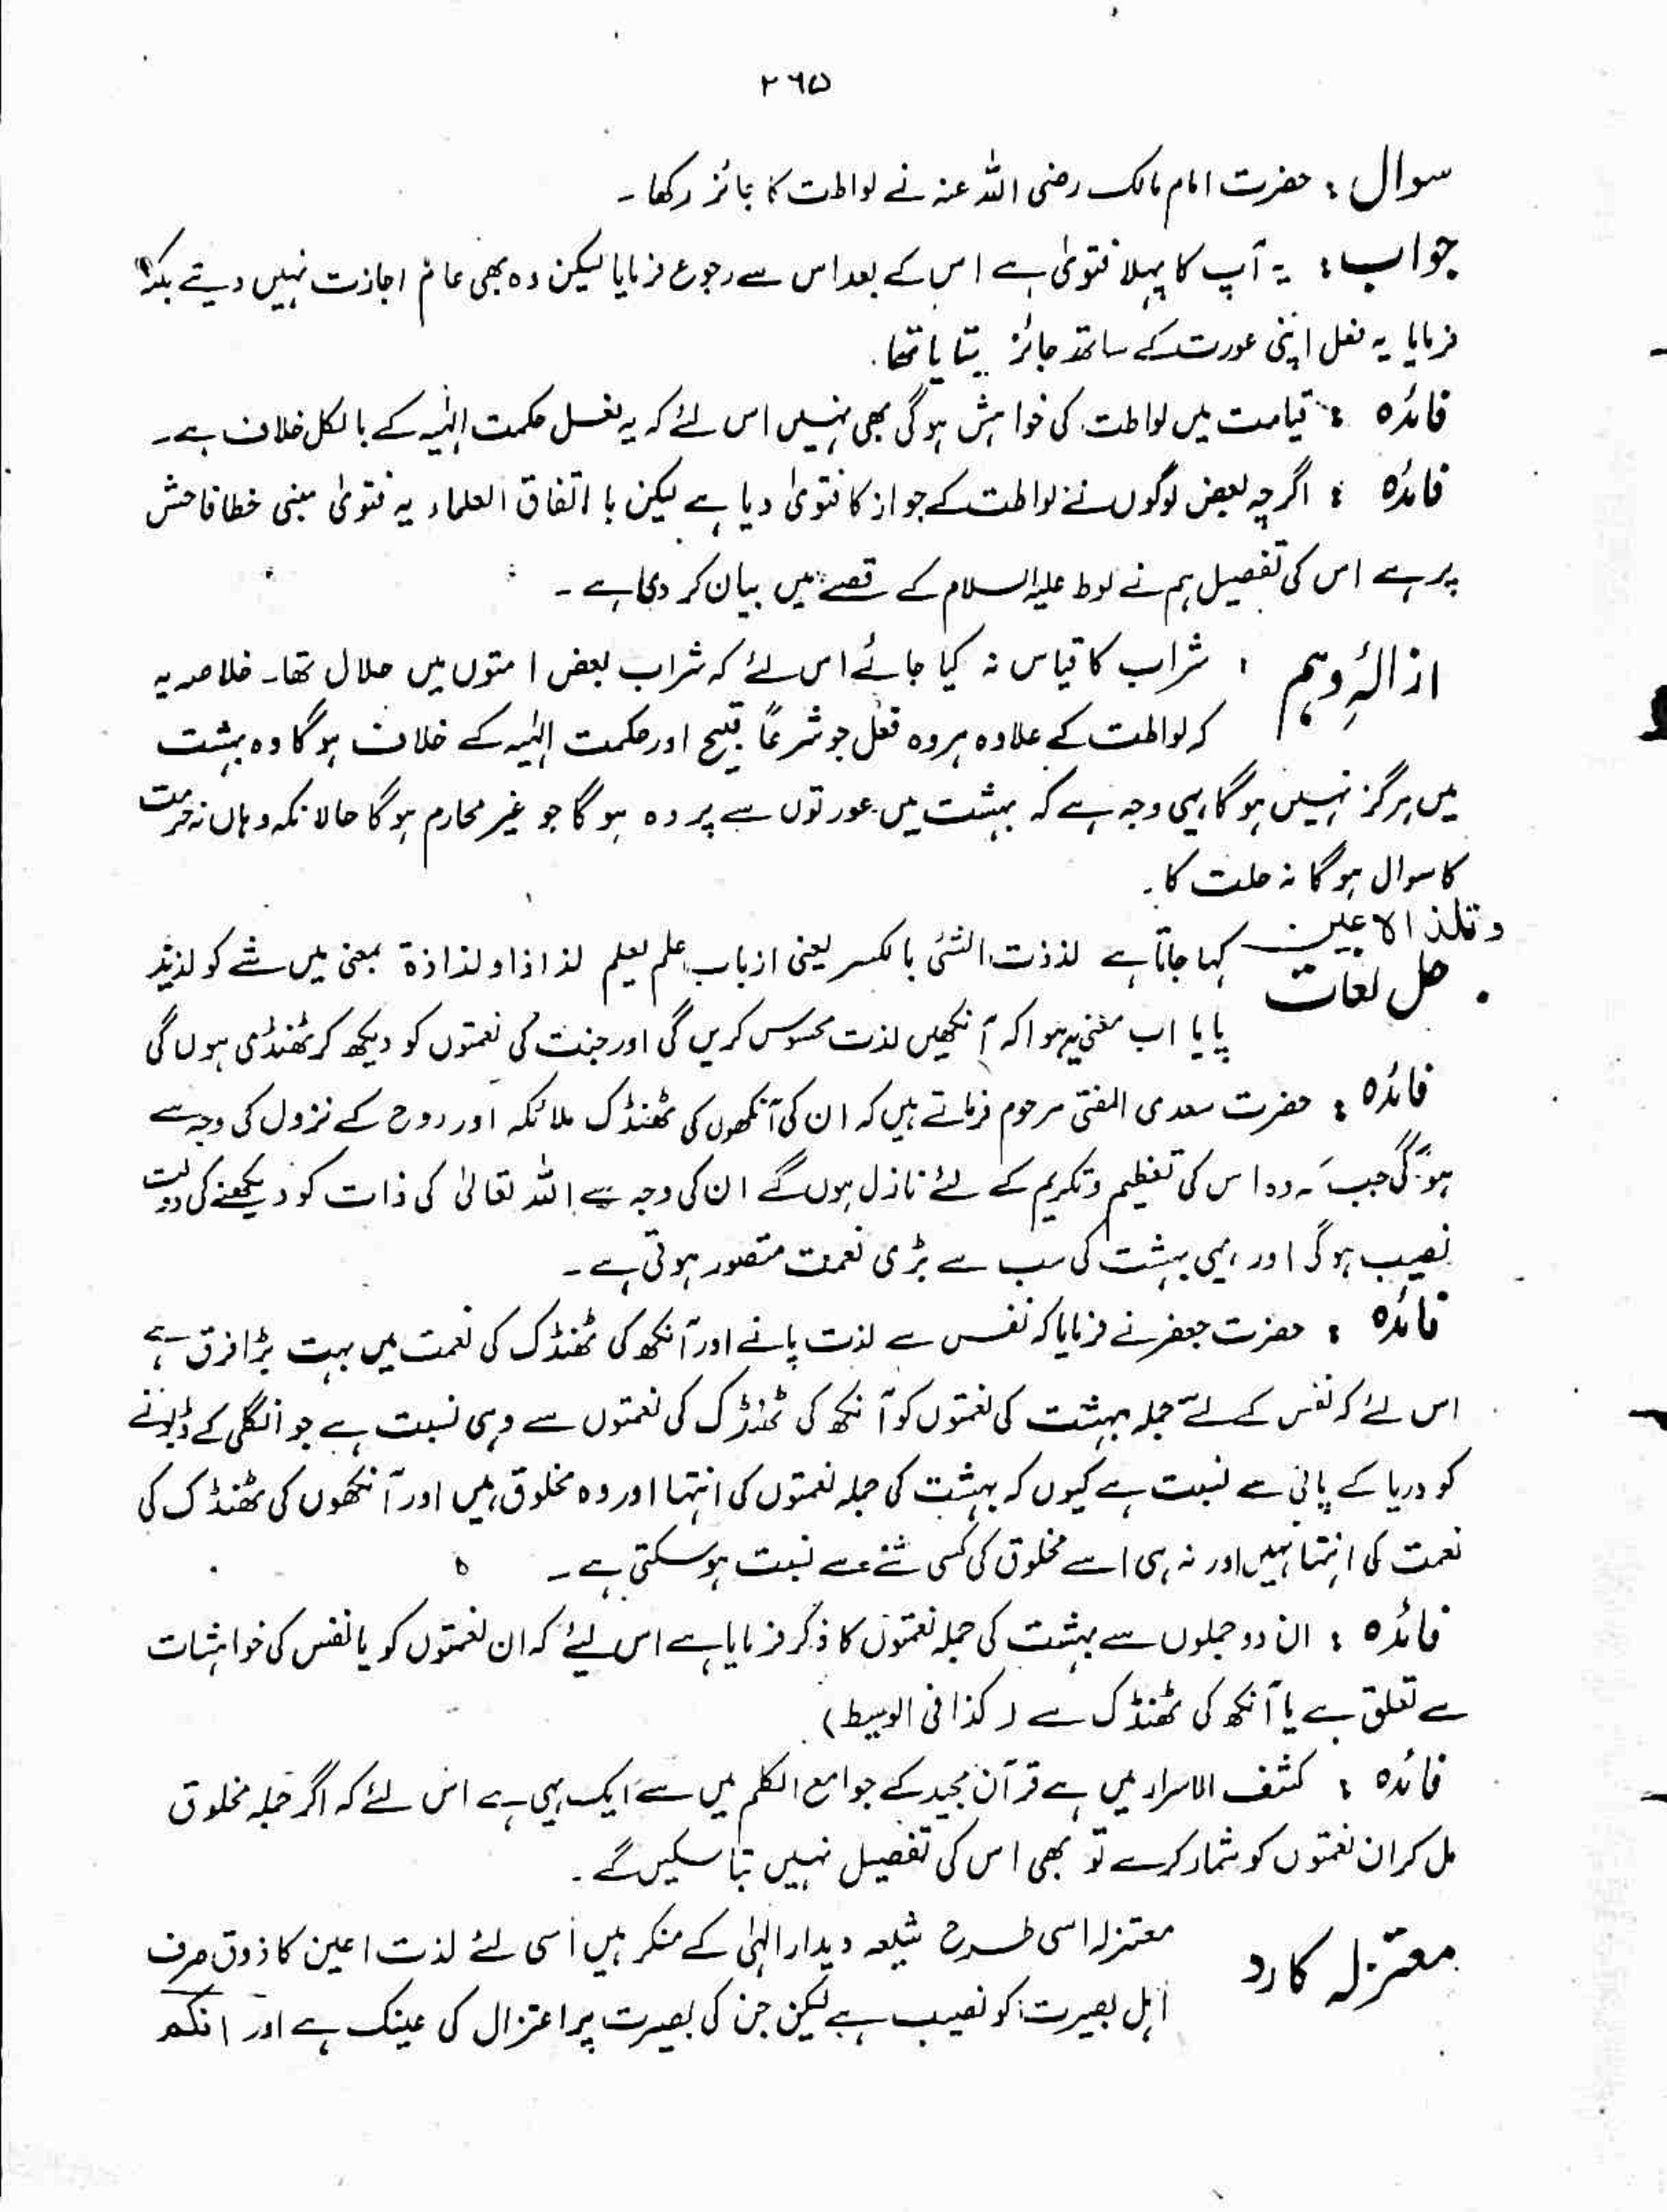 ۲۶۵
سوال : حضرت امام مالک رضی اللہ عنہ نے لواطت کا جائز رکھا ۔
جواب : یہ آپ کا پہلا فتویٰ ہے اس کے بعد اس سے رجوع فرمایا لیکن وہ بھی عام اجازت نہیں دیتے بلکہ
فرمایا یہ فعل اپنی عورت کے ساتھ جائز بتایا تھا۔
فائدہ : قیامت میں لواطت کی خواہش ہوگی بھی نہیں اس لئے کہ یہ فعل حکمت الٰہیہ کے بالکل خلاف ہے۔
فائدہ : اگرچہ بعض لوگوں نے لواطت کے جواز کا فتویٰ دیا ہے لیکن با اتفاق العلماء یہ فتویٰ مبنی خطا فاحش
پر ہے اس کی تفصیل ہم نے لوط علیہ السلام کے قصے میں بیان کر دی ہے ۔
ازالۂ وہم : شراب کا قیاس نہ کیا جائے اس لئے کہ شراب بعض امتوں میں حلال تھا۔ خلاصہ یہ
کہ لواطت کے علاوہ ہر وہ فعل جو شرعاً قبیح اور حکمت الٰہیہ کے خلاف ہوگا وہ بہشت
میں ہرگز نہیں ہوگا یہی وجہ ہے کہ بہشت میں عورتوں سے پردہ ہوگا جو غیر محارم ہوگا حالانکہ وہاں نہ حرمت
کا سوال ہوگا نہ حلت کا ۔
وتلذ الاعین
حل لغات کہا جاتا ہے لذذت الشئی بالکسر یعنی از باب علم یعلم لذاذا ولذاذة بمعنی میں شے کو لذیذ
پایا اب معنی یہ ہوا کہ آنکھیں لذت محسوس کریں گی اور جنت کی نعمتوں کو دیکھ کر ٹھنڈی ہوں گی
فائدہ : حضرت سعدی المفتی مرحوم فرماتے ہیں کہ ان کی آنکھوں کی ٹھنڈک ملائکہ اور روح کے نزول کی وجہ سے
ہوگی جب کہ وہ اس کی تعظیم وتکریم کے لئے نازل ہوں گے ان کی وجہ سے اللہ تعالیٰ کی ذات کو دیکھنے کی دولت
نصیب ہوگی اور یہی بہشت کی سب سے بڑی نعمت متصور ہوتی ہے ۔
فائدہ : حضرت جعفر نے فرمایا کہ نفس سے لذت پانے اور آنکھ کی ٹھنڈک کی نعمت میں بہت بڑا فرق ہے
اس لئے کہ نفس کے لئے جملہ بہشت کی نعمتوں کو آنکھ کی ٹھنڈک کی نعمتوں سے وہی نسبت ہے جو انگلی کے ڈبونے
کو دریا کے پانی سے نسبت ہے کیوں کہ بہشت کی جملہ نعمتوں کی انتہا اور وہ مخلوق ہیں اور آنکھوں کی ٹھنڈک کی
نعمت کی انتہا نہیں اور نہ ہی اسے مخلوق کی کسی شئے سے نسبت ہو سکتی ہے ۔
فائدہ : ان دو جملوں سے بہشت کی جملہ نعمتوں کا ذکر فرمایا ہے اس لیئے کہ ان نعمتوں کو یا نفس کی خواہشات
سے تعلق ہے یا آنکھ کی ٹھنڈک سے (کذا فی الوسیط)
فائدہ : کشف الاسرار میں ہے قرآن مجید کے جوامع الکلم میں سے ایک یہی ہے اس لئے کہ اگر جملہ مخلوق
مل کر ان نعمتوں کو شمار کرے تو بھی اس کی تفصیل نہیں بتا سکیں گے ۔
معتزلہ کا رد معتزلہ اسی طرح شیعہ دیدار الٰہی کے منکر ہیں اسی لئے لذت اعین کا ذوق صرف
اہل بصیرت کو نصیب ہے لیکن جن کی بصیرت پر اعتزال کی عینک ہے اور انکم